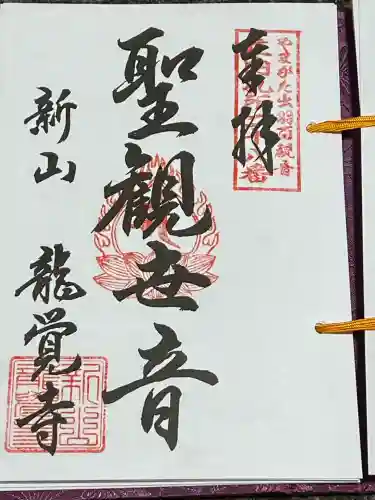 奉拝
やまがた出羽百観音
聖観世音
新山 龍覚寺